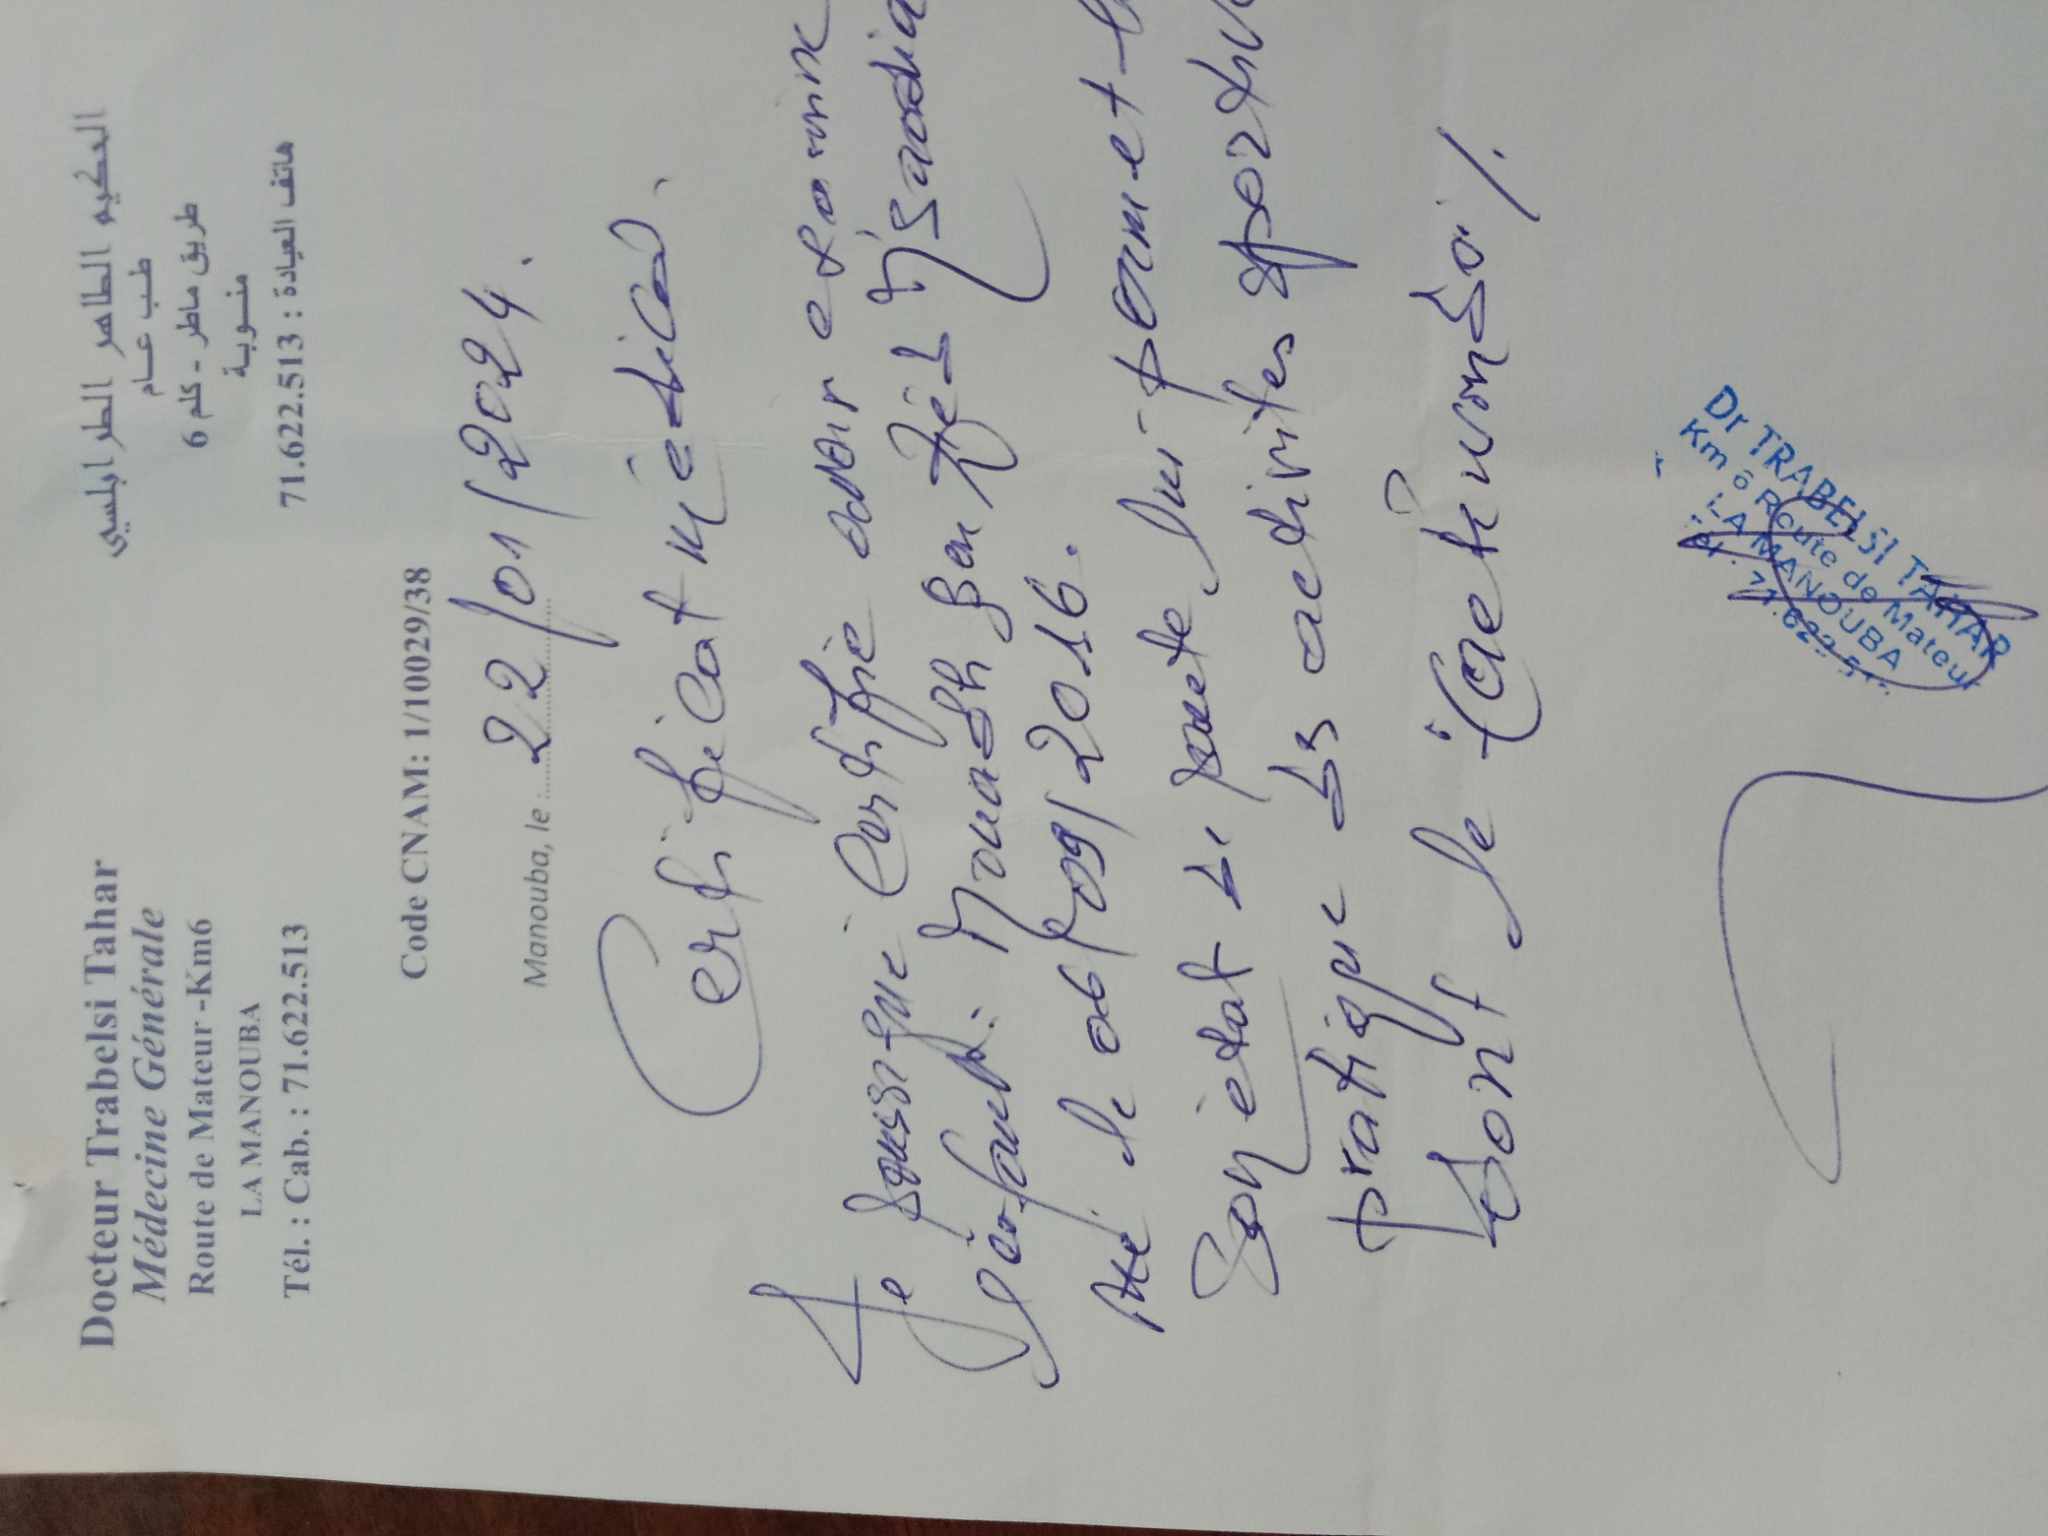 Docteur Trabelsi Tahar
Médecine Générale
Route de Mateur -Km6
LA MANOUBA
Tél. : Cab. : 71.622.513
الحكيم الطاهر الطرابلسي
طب عام
طريق ماطر - كلم 6
منوبة
هاتف العيادة : 71.622.513
Code CNAM: 1/10029/38
Manouba, le : 22/01/2024.
Certificat Médical.
Je soussigné Certifie avoir examiné
l'enfant: Mouadh Ben
Né le 06/09/2016.
Son état de santé lui permet
pratique des activités sportiv
dont le
Dr TRABELSI TAHAR
Km 6 Route de Mateur
LA MANOUBA
Tel. 71.622.51